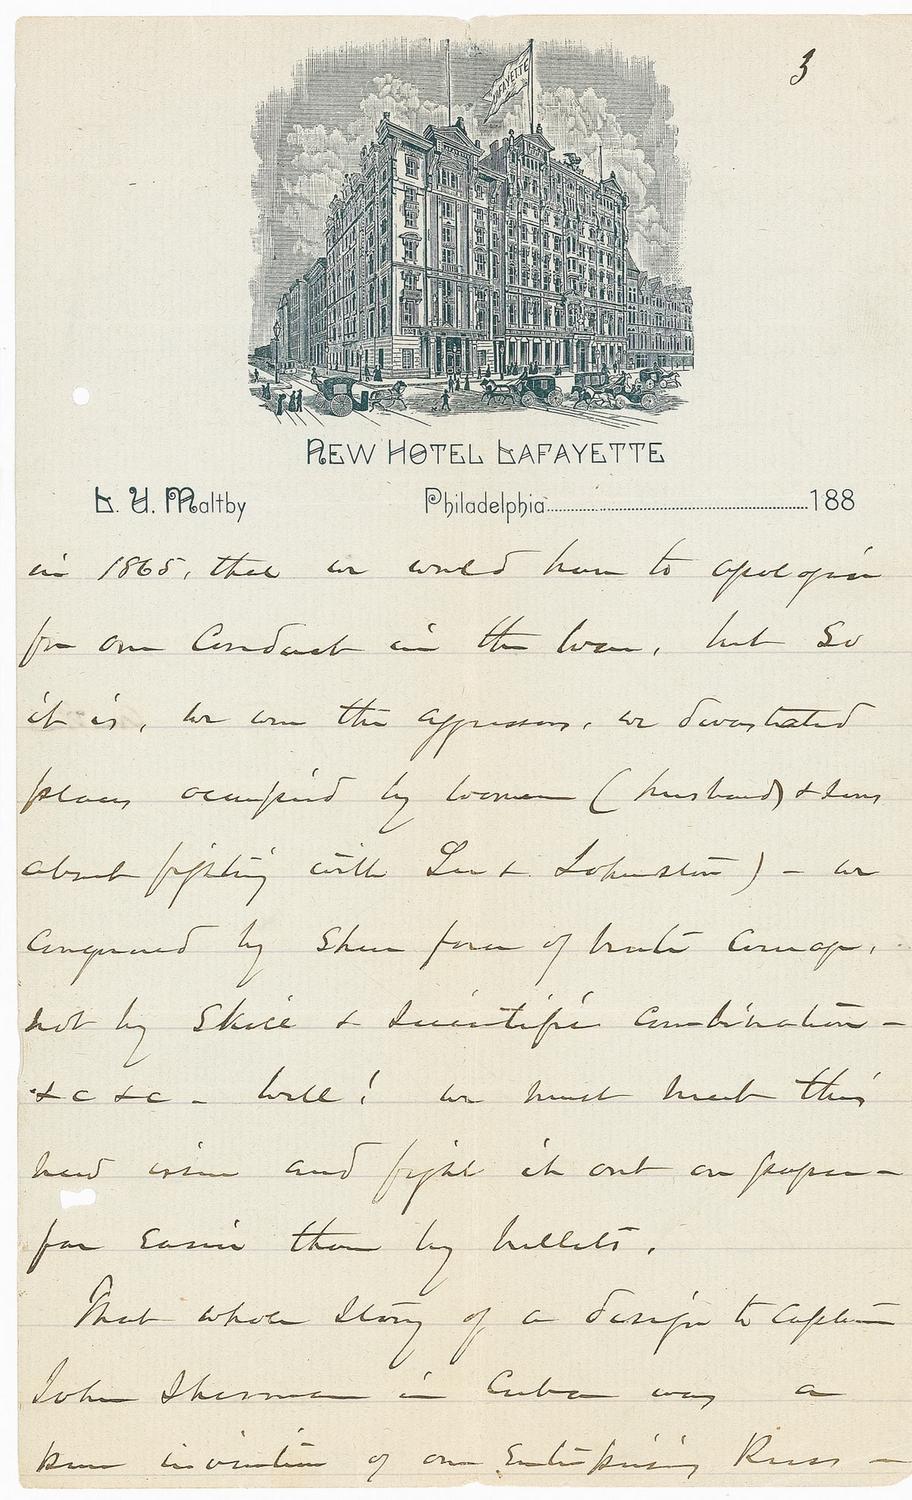 3
LAFAYETTE
NEW HOTEL LAFAYETTE
L. U. Maltby Philadelphia 188
in 1865, that we would have to apologize
for our Conduct in the War, but So
it is, we were the aggressors, we devastated
places occupied by women (husbands & sons
about fighting with Lee & Johnston) - we
conquered by Sheer force of brute Courage,
not by Skill & Scientific Combination -
&c &c - Well! we must meet this
new issue and fight it out on paper -
far Easier than by bullets.
That whole Story of a design to Capture
John Sherman in Cuba was a
pure invention of our Enterprising Press -